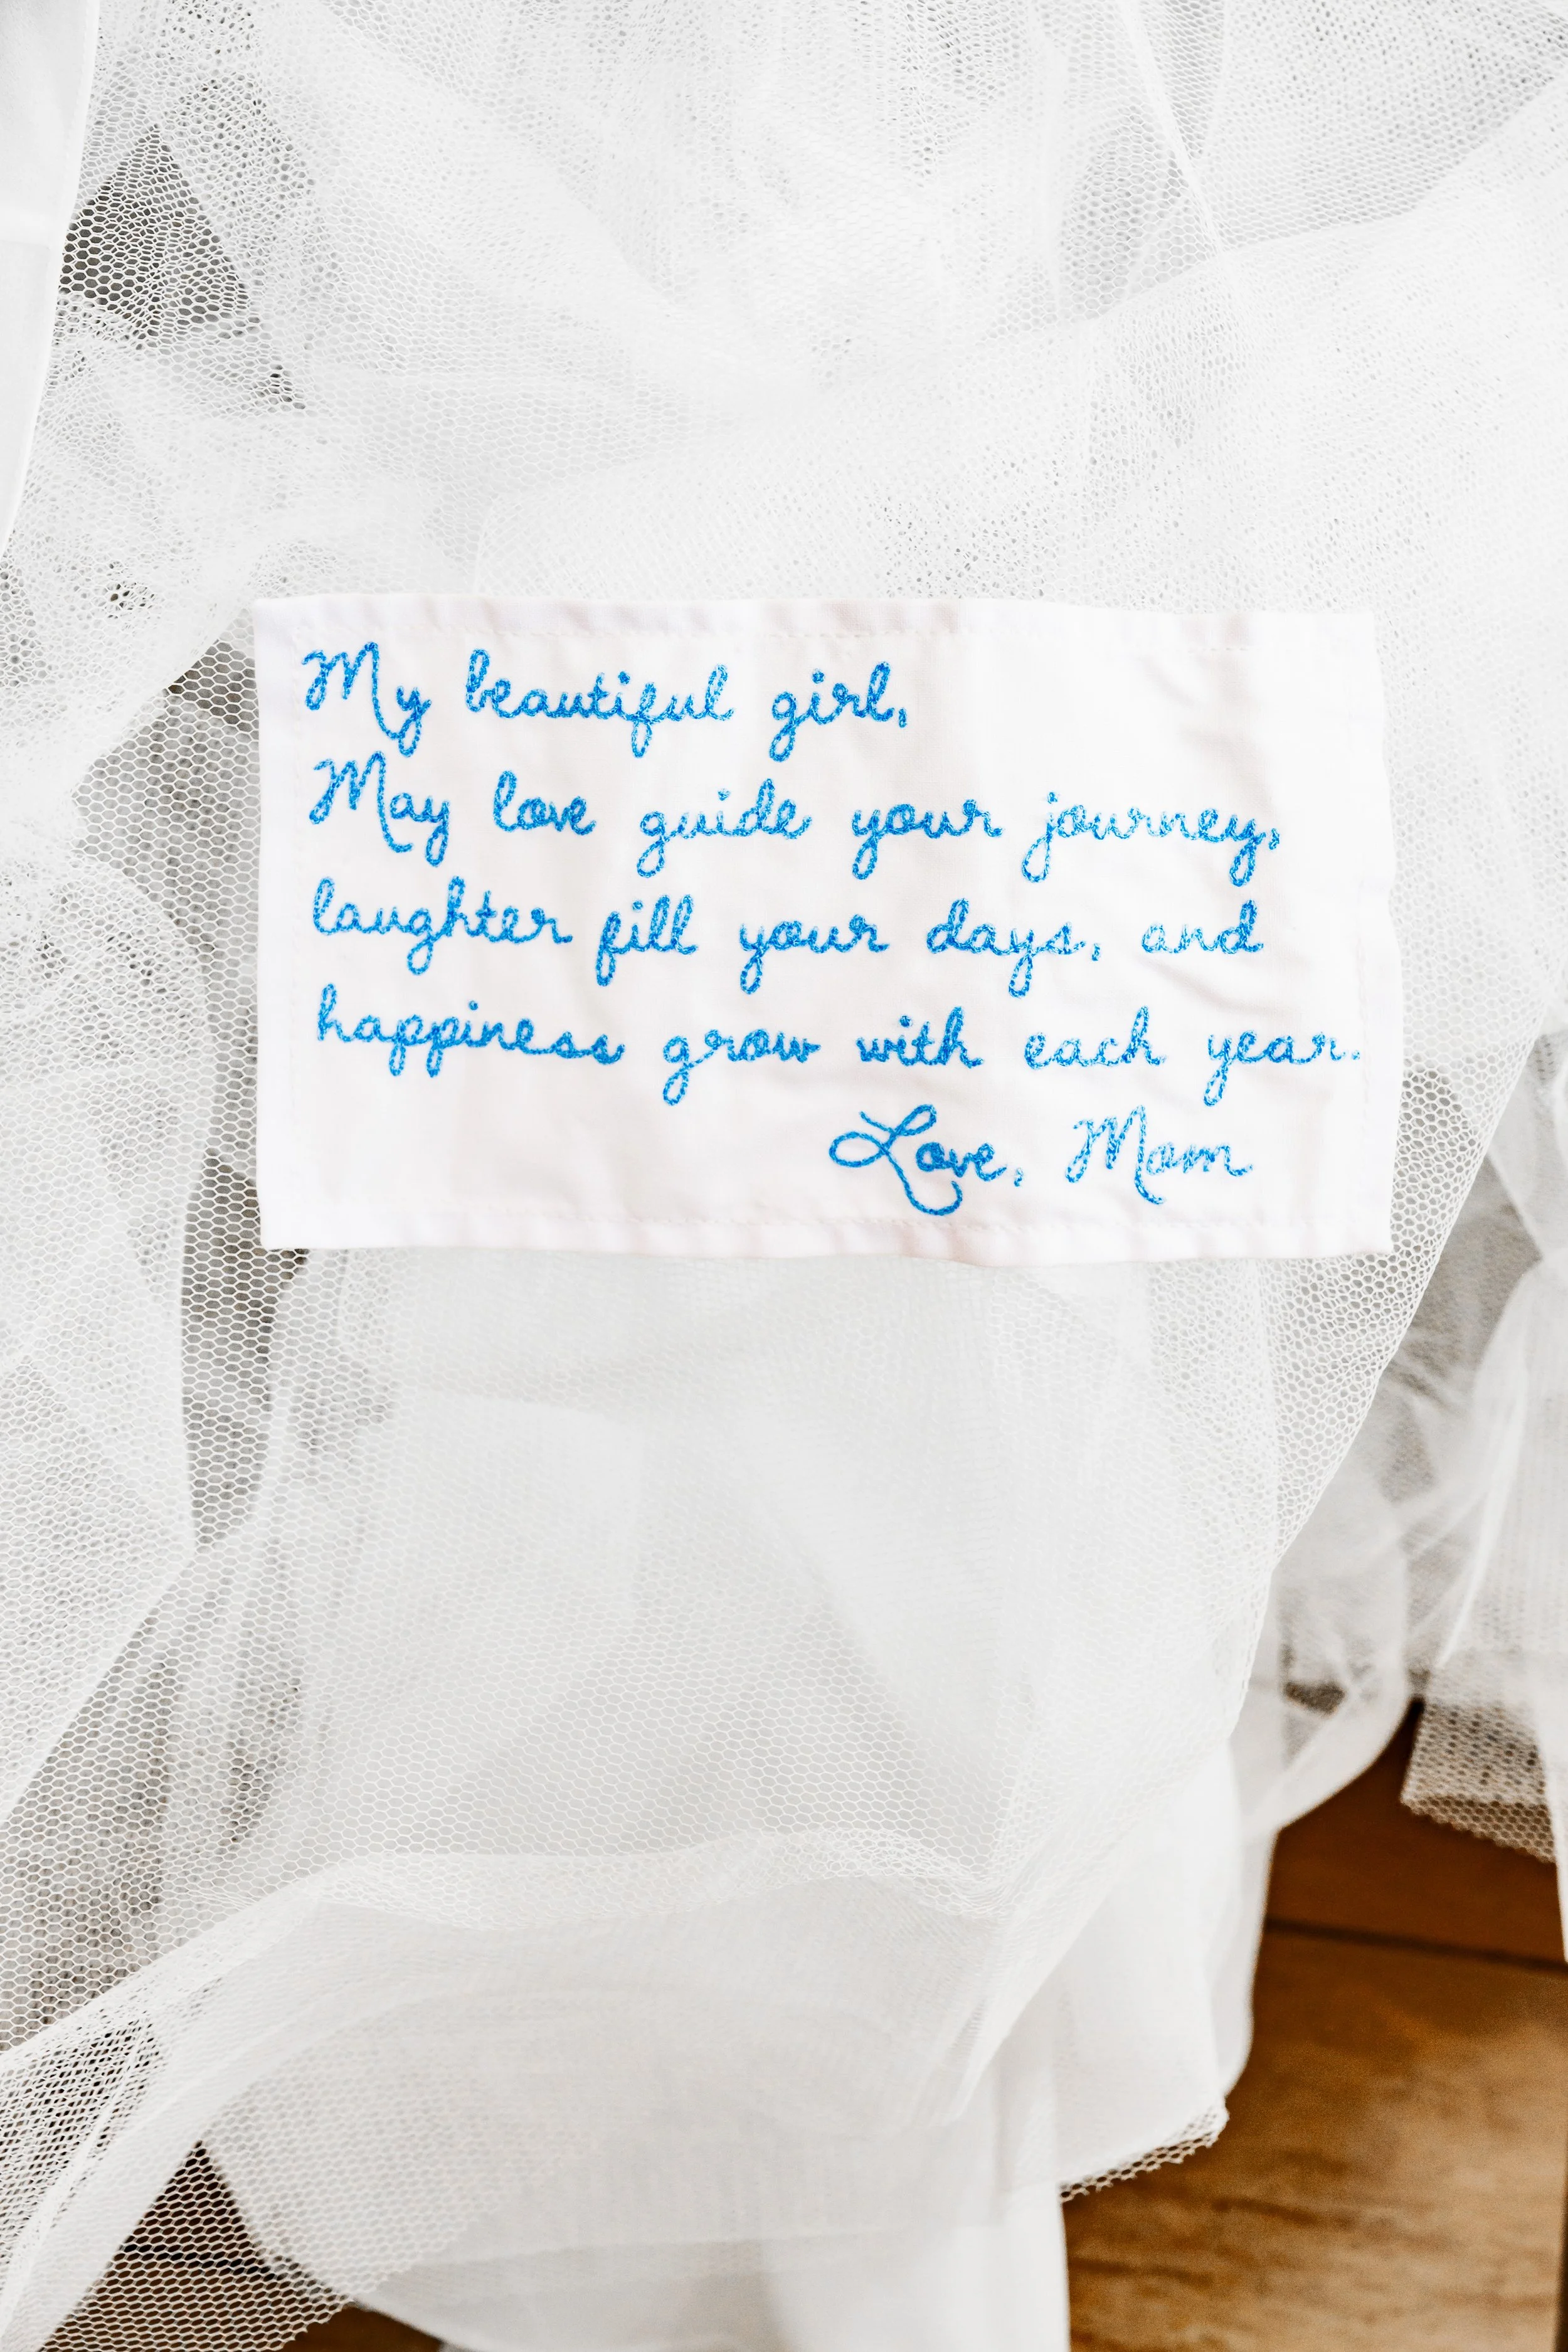 My beautiful girl,
May love guide your journey,
laughter fill your days, and
happiness grow with each year.
Love, Mom